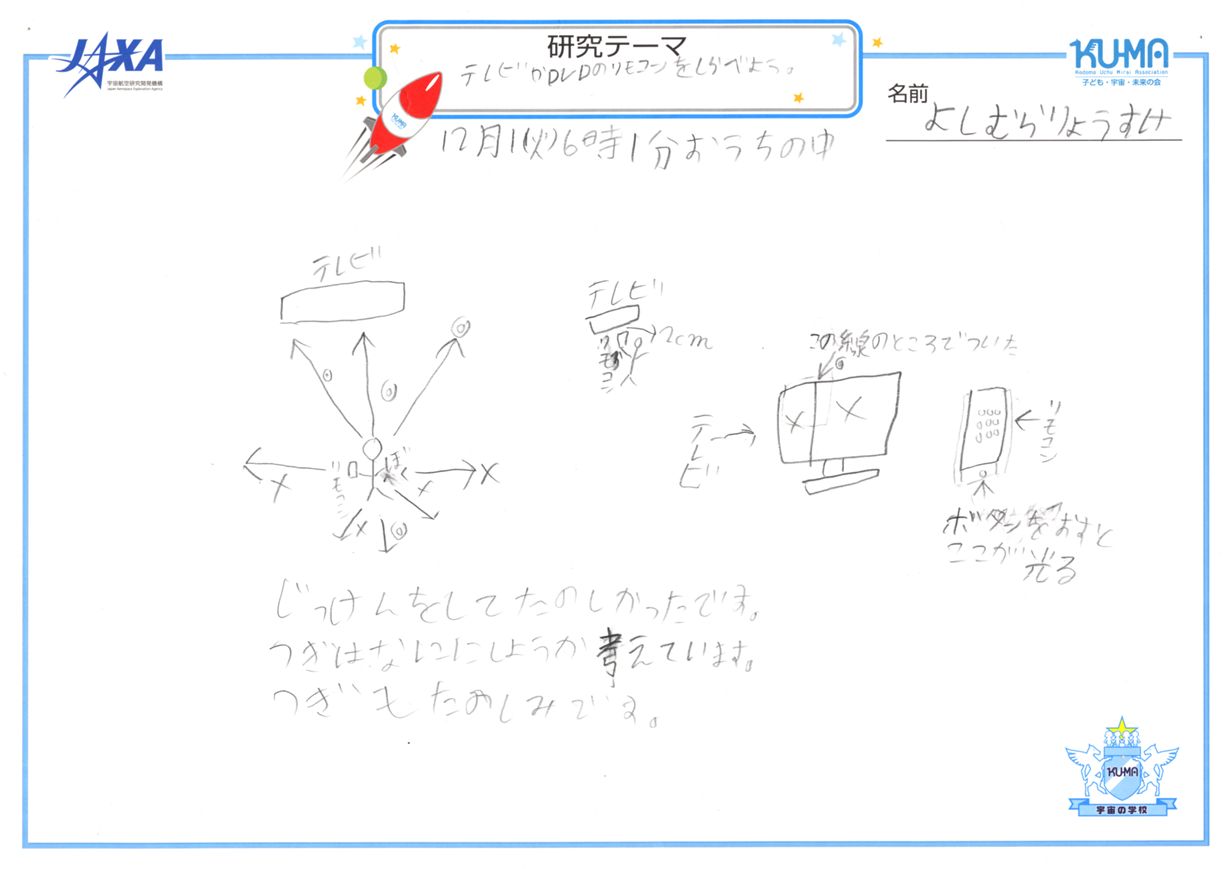 JAXA
宇宙航空研究開発機構
Japan Aerospace Exploration Agency
研究テーマ
テレビかDVDのリモコンをしらべよう。
KUMA
KUMA
Kodomo Uchu Mirai Association
子ども・宇宙・未来の会
名前
よしむらりょうすけ
12月1(火)6時1分おうちの中
テレビ
◎
◎
◎
リモコン
ぼく
×
×
×
×
◎
テレビ
2cm
リモコン
この線のところでついた
◎
テレビ
×
×
リモコン
ボタンをおすと
ここが光る
じっけんをしてたのしかったです。
つぎはなににしようか考えています。
つぎもたのしみです。
KUMA
宇宙の学校